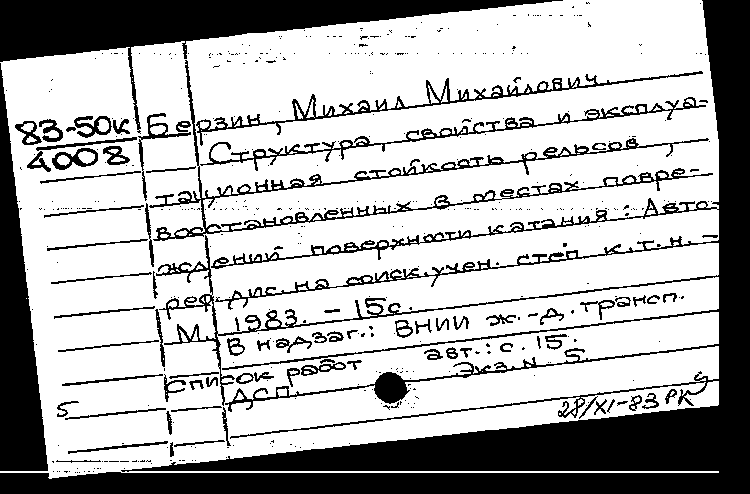 83-50к
4008
Берзин, Михаил Михайлович.
Структура, свойства и эксплуа-
тационная стойкость рельсов,
восстановленных в местах повре-
ждений поверхности катания: Авто-
реф. дис. на соиск. учен. степ к.т.н. -
М., 1983. - 15с.
В надзаг.: ВНИИ ж.-д. трансп.
Список работ авт.: с. 15.
ДСП. Экз. N 5.
5
28/XI-83 РК